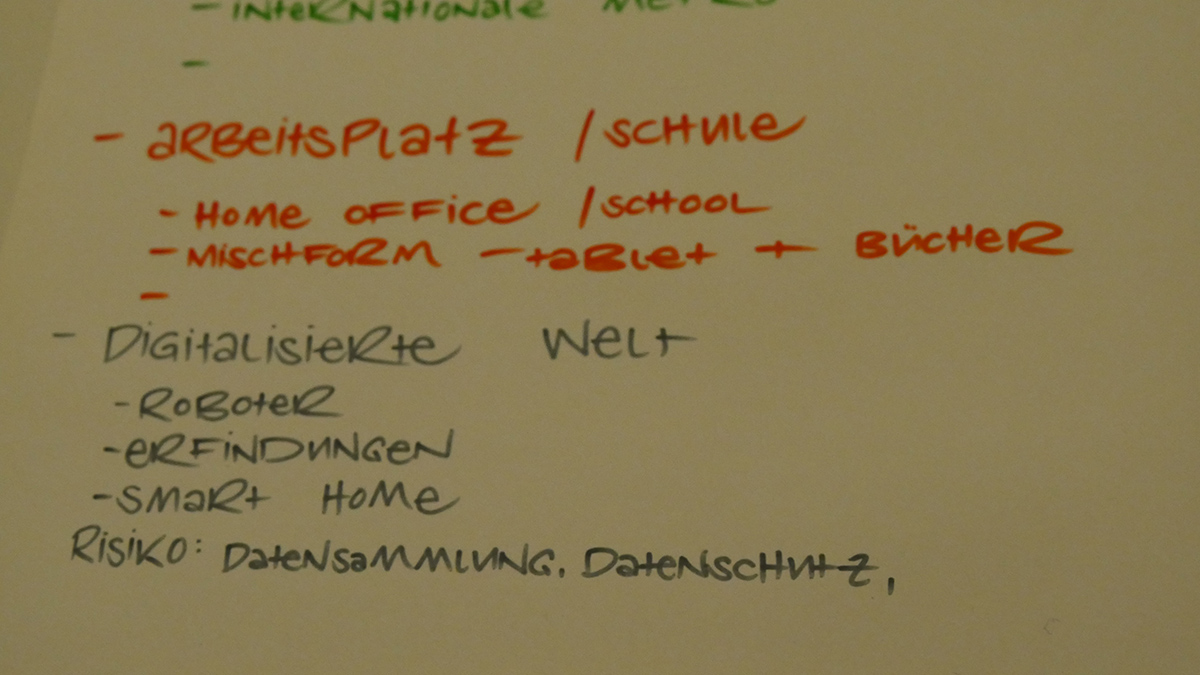 - internationale Metro
-
- Arbeitsplatz / Schule
- Home Office / School
- Mischform - Tablet + Bücher
-
- Digitalisierte Welt
- Roboter
- Erfindungen
- Smart Home
Risiko: Datensammlung, Datenschutz,